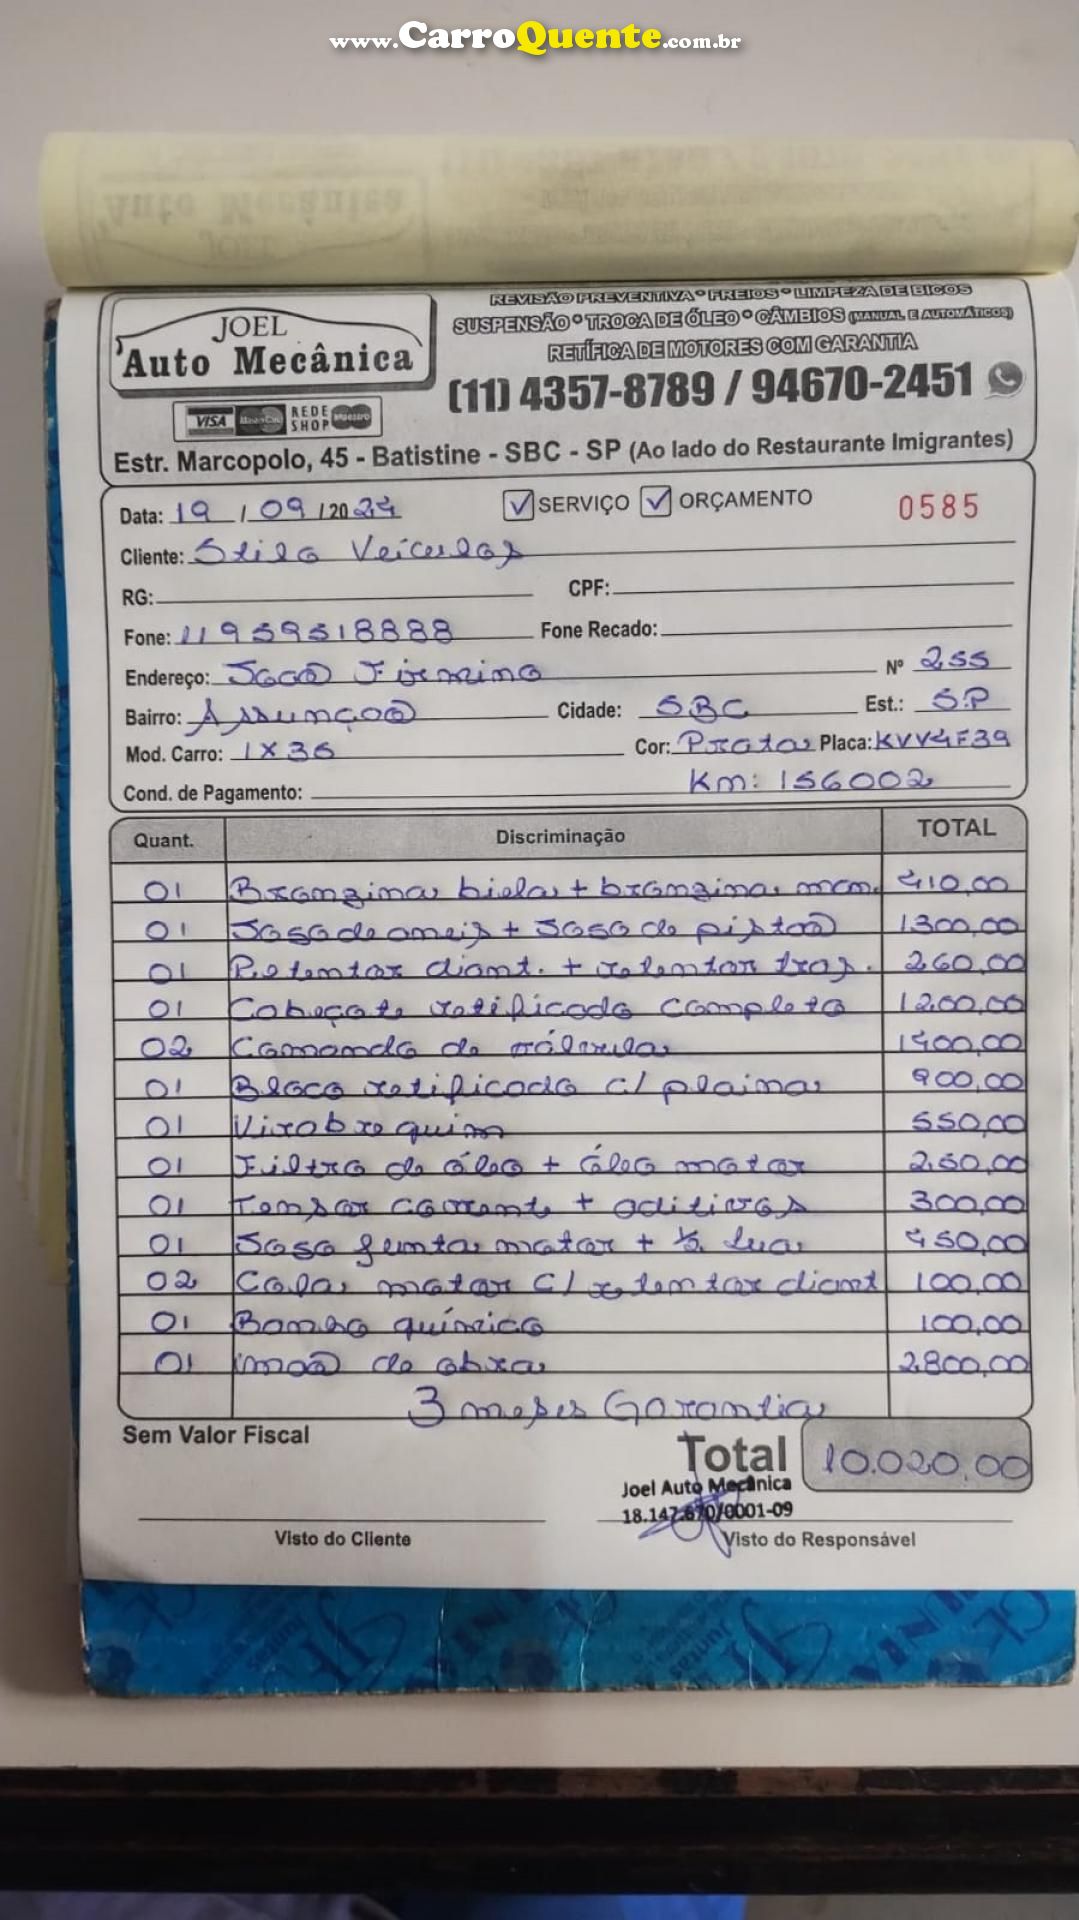 www.CarroQuente.com.br
REVISÃO PREVENTIVA • FREIOS • LIMPEZA DE BICOS
SUSPENSÃO • TROCA DE ÓLEO • CÂMBIOS (MANUAL E AUTOMÁTICOS)
RETÍFICA DE MOTORES COM GARANTIA
JOEL
Auto Mecânica
(11) 4357-8789 / 94670-2451
VISA MasterCard REDE SHOP Maestro
Estr. Marcopolo, 45 - Batistine - SBC - SP (Ao lado do Restaurante Imigrantes)
Data: 19 / 09 / 2024 SERVIÇO ORÇAMENTO 0585
Cliente: Stilo Veículos
RG: CPF:
Fone: 11959518888 Fone Recado:
Endereço: João Firmino Nº 255
Bairro: Assunção Cidade: SBC Est.: SP
Mod. Carro: IX35 Cor: Prata Placa: KVV4F39
Cond. de Pagamento: Km: 156002
Quant. Discriminação TOTAL
01 Bronzina biela + bronzina man. 410,00
01 Jogo de aneis + Jogo de pistão 1.300,00
01 Retentor diant. + retentor tras. 260,00
01 Cabeçote retificado completo 1.200,00
02 Comando de válvula 1400,00
01 Bloco retificado c/ plaina 900,00
01 Virabrequim 550,00
01 Filtro de óleo + óleo motor 250,00
01 Tensor corrente + aditivos 300,00
01 Jogo junta motor + ½ lua 450,00
02 Cola motor c/ retentor diant 100,00
01 Banho químico 100,00
01 mão de obra 2.800,00
3 meses Garantia
Sem Valor Fiscal
Total 10.020,00
Joel Auto Mecânica
18.147.670/0001-09
Visto do Cliente Visto do Responsável